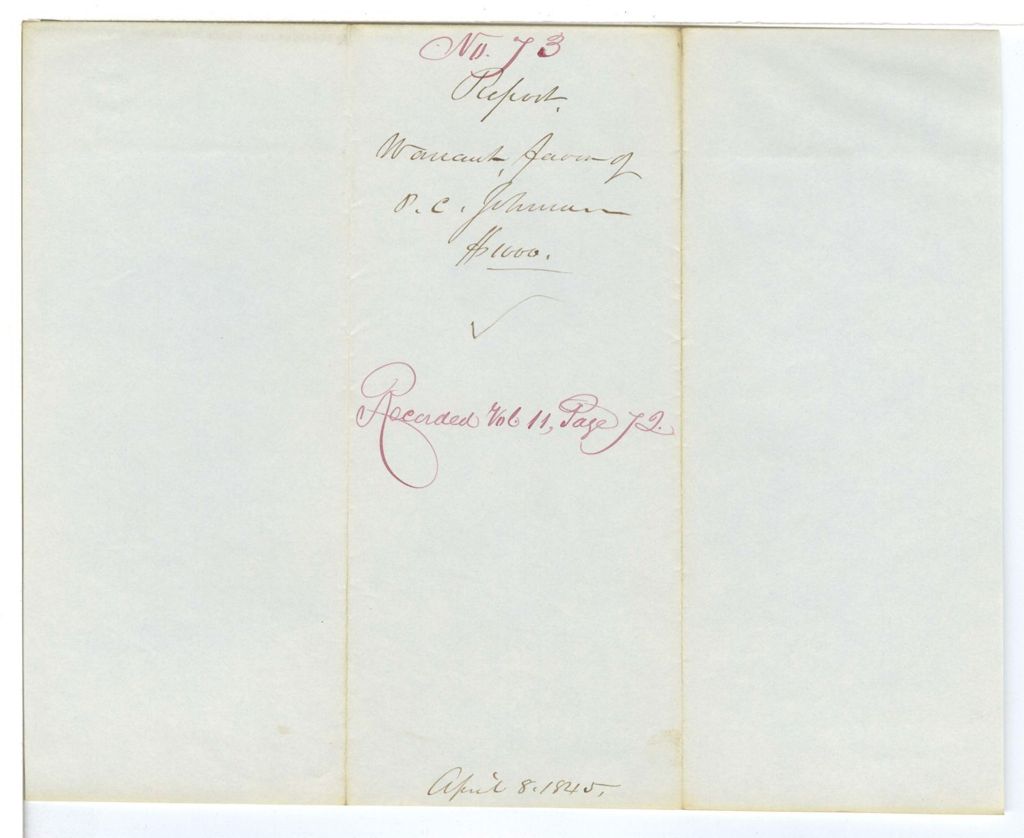 No. 73
Report.
Warrant, favor of
P. C. Johnson
$1000.
Recorded Vol. 11, Page 72.
April 8. 1845.